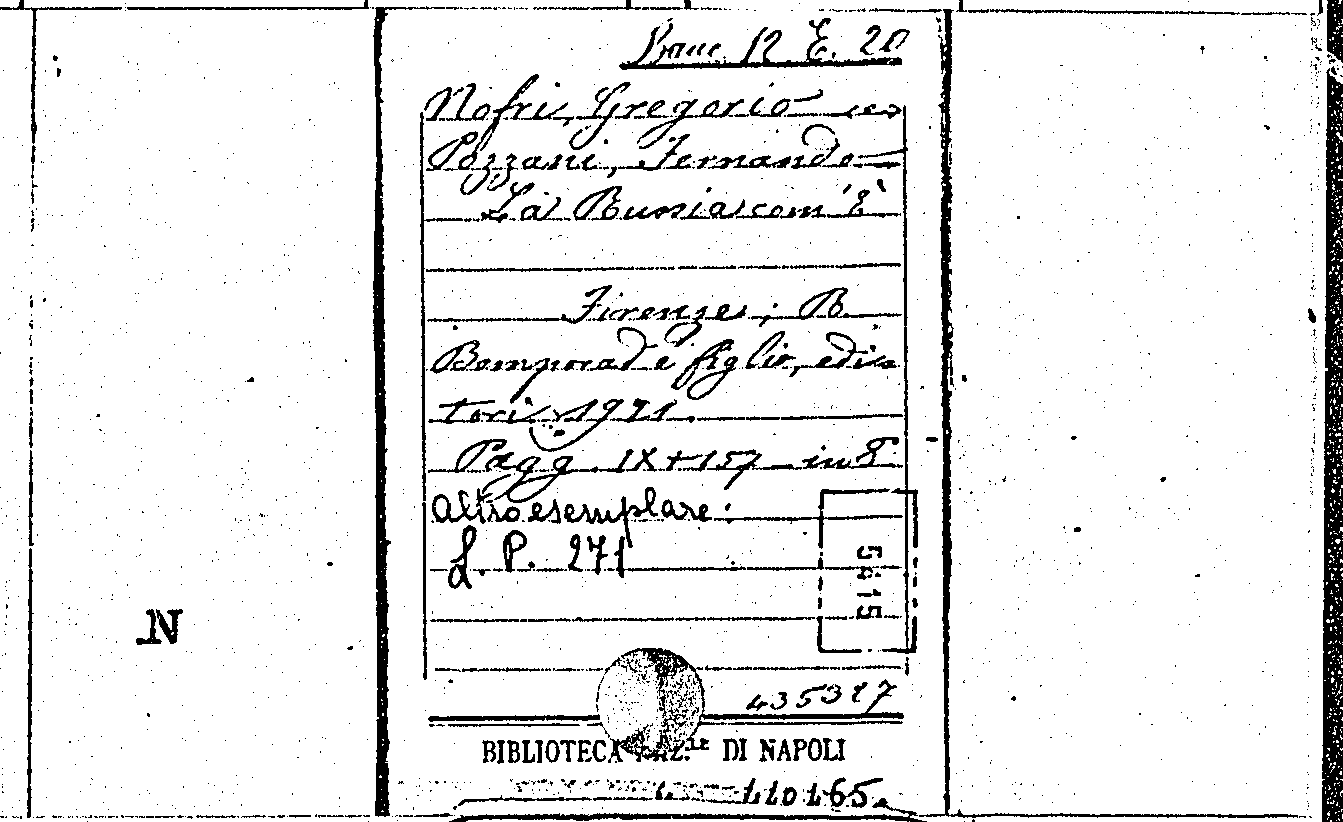 Banc. 12 E. 20
Nofri, Gregorio e
Pozzani, Fernando
La Russia com'è
Firenze; B.
Bemporad e figlio, edi-
tori 1921.
Pagg. IX+157 in 8°
Altro esemplare:
L. P. 271
5415
N
435317
BIBLIOTECA NAZ.LE DI NAPOLI
110165